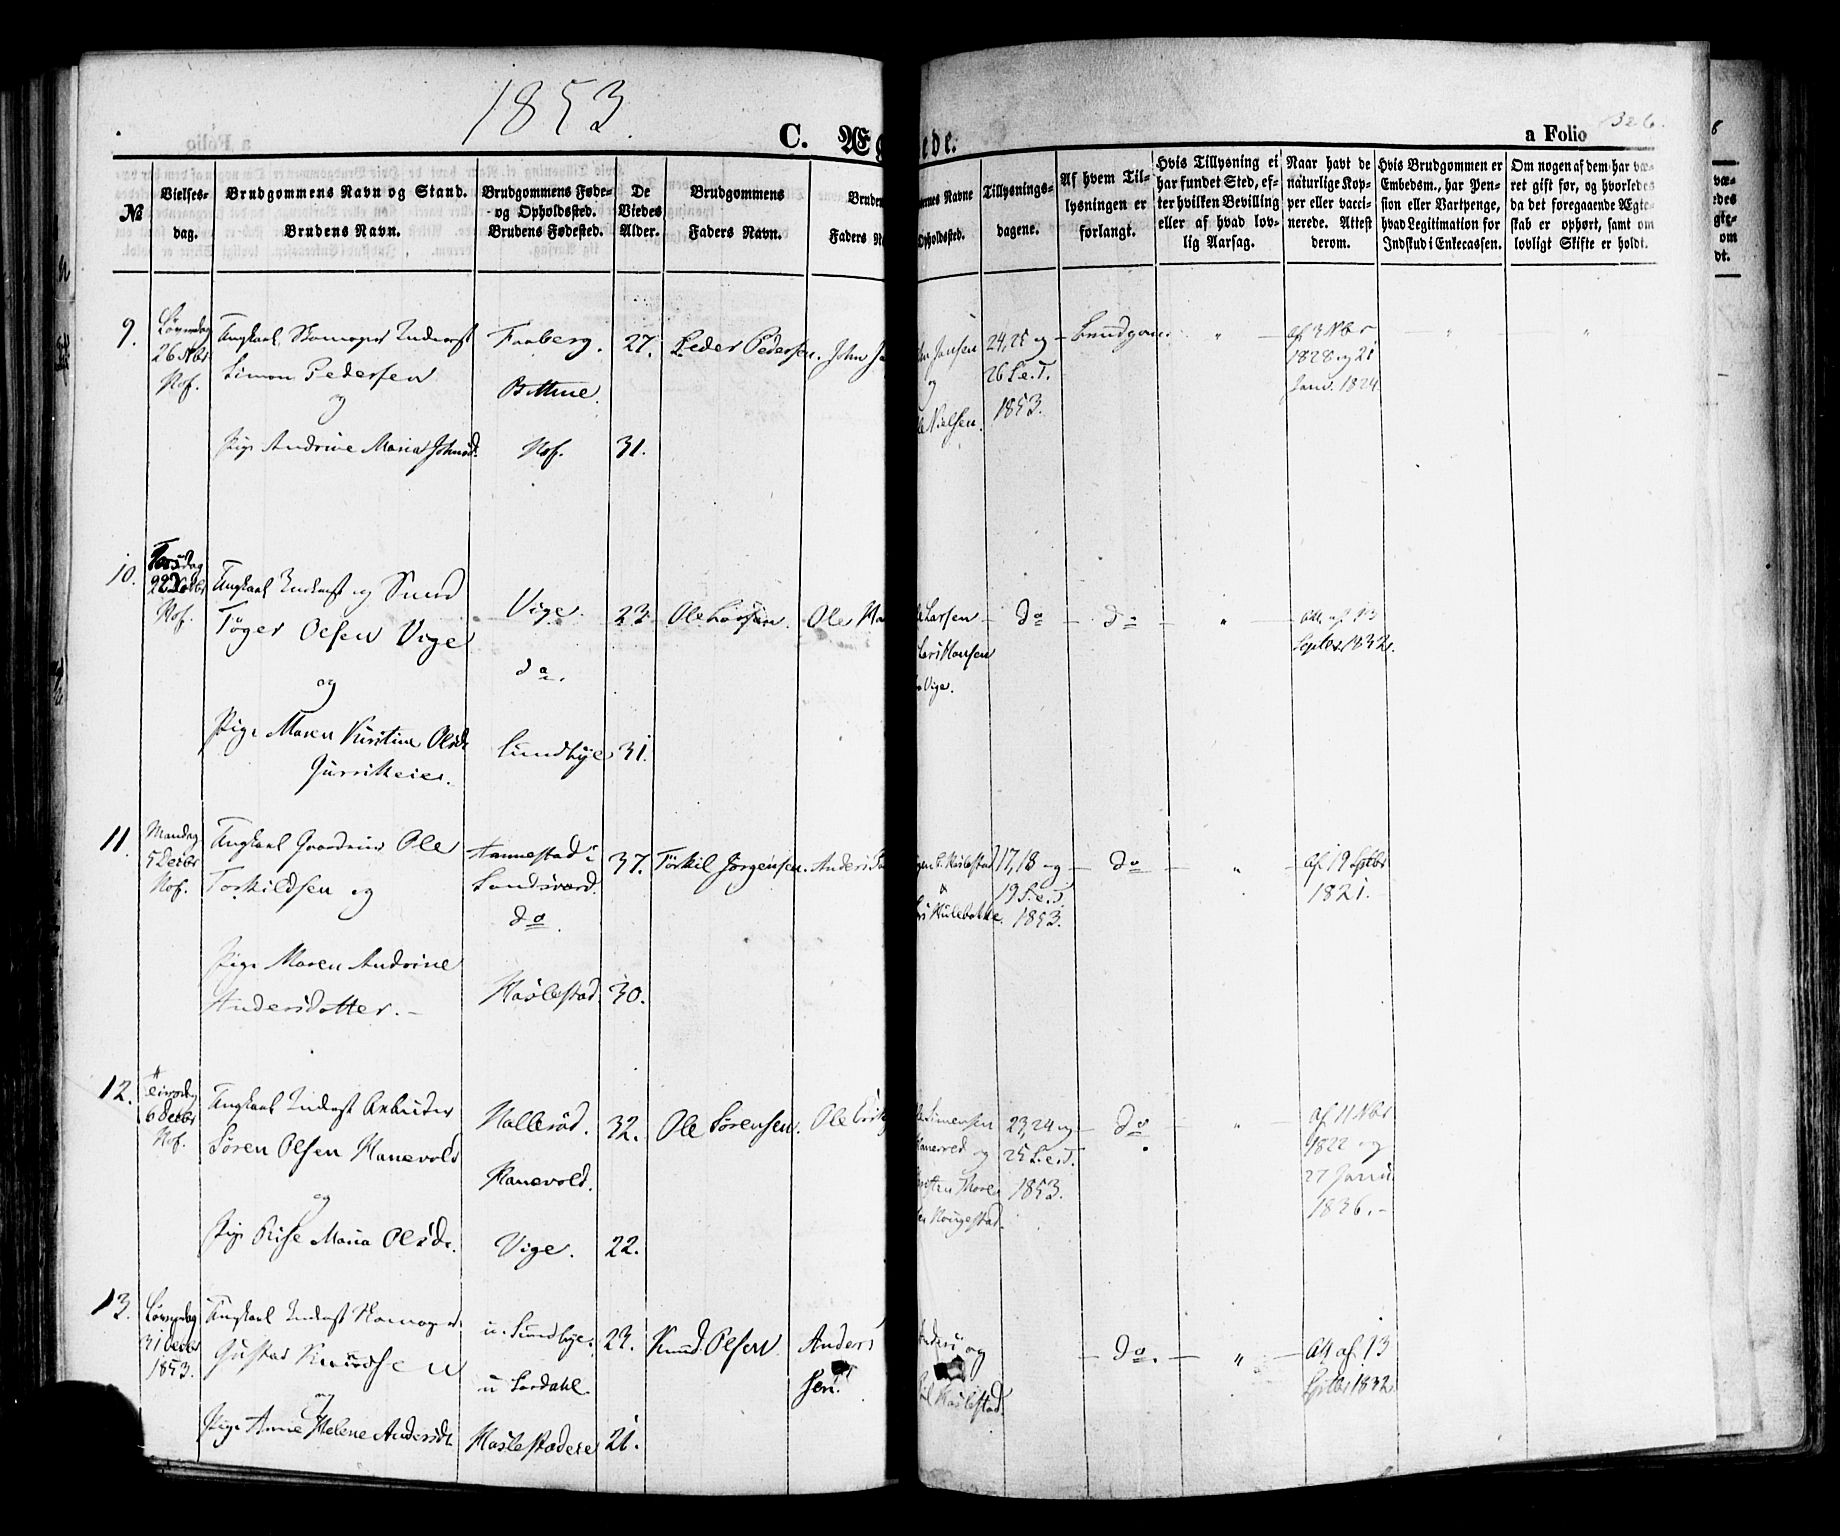 1853.
C. Æg
ede.
a Folio
326.
№
Vielses-
dag.
Brudgommens Navn og Stand.
Brudens Navn.
Brudgommens Føde-
og Opholdssted.
Brudens Fødested.
De
Viedes
Alder.
Brudgommens
Faders Navn.
Bruden
Faders Na
ernes Navne
Opholdsted.
Tillysnings-
dagene.
Af hvem Til-
lysningen er
forlangt.
Hvis Tillysning ei
har fundet Sted, ef-
ter hvilken Bevilling
eller af hvad lov-
lig Aarsag.
Naar havt de
naturlige Kop-
per eller vacci-
nerede. Attest
derom.
Hvis Brudgommen er
Embedsm., har Pen-
sion eller Vartpenge,
hvad Legitimation for
Indskud i Enkecassen.
Om nogen af dem har væ-
ret gift før, og hvorledes
da det foregaaende Ægte-
skab er ophørt, samt om
lovligt Skifte er holdt.
9.
Løverdag
26 Nbr
Hof.
Ungkarl Skomager Inderst
Simon Pedersen
og
Pige Andrine Maria Johnsd.
Faaberg.
Hof.
27.
31.
Peder Pedersen.
John Ja
Jansen
og
Nielsen.
24, 25 og
26 S.e.T.
1853.
Brudgomen
af 3 Nbr
1828 og 21
Janv. 1824
10.
Torsdag
22 Decbr
Hof.
Ungkarl Inderst og Smed
Tøger Olsen Vige
og
Pige Maren Kristine Olsdr
Vige.
do.
Sundbye
23
31.
Ole Larsen.
Ole Ha
Larsen
Lars Hansen
Vige.
do
do
Att. af 13
Septbr 1832.
11.
Mandag
5 Decbr
Hof.
Ungkarl Gaardmd Ole
Torkildsen og
Pige Maren Andrine
Andersdatter.
Sandsværd.
do
Haslestad
37.
30.
Torkil Jørgensen.
Anders
Haslestad
&
17, 18 og
19 S.e.T.
1853.
do
af 19 Sptbr
1821.
12.
Tirsdag
6 Decbr
Hof.
Ungkarl Inderst Arbeider
Søren Olsen Hanevold
og
Pige Lise Maria Olsdr.
Hallerød.
Hanevold.
Vige.
32.
22.
Ole Sørensen.
Ole
Simensen
og
Thore
Hougestad.
23, 24 og
25 S.e.T.
1853.
do
af 11 Nbr
1822 og
27 Janu.
1836.
13.
Løverdag
31 Decbr
1853.
Ungkarl Inderst Skomager
Gustav Knudsen
og
Pige Anne Helene Andersdr
u. Sundbye.
Haslestadeie
23.
21.
Knud Olsen
Anders
sen.
Anders og
Haslestad.
do.
Att af 13
Sptbr 1832